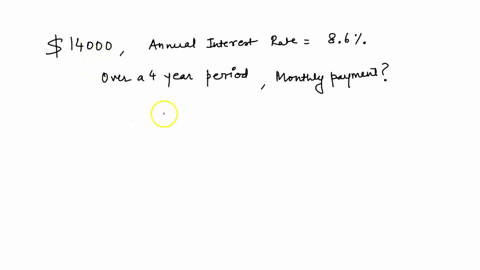 $14000, Annual Interest Rate = 8.6%.
Over a 4 year period, Monthly payment?